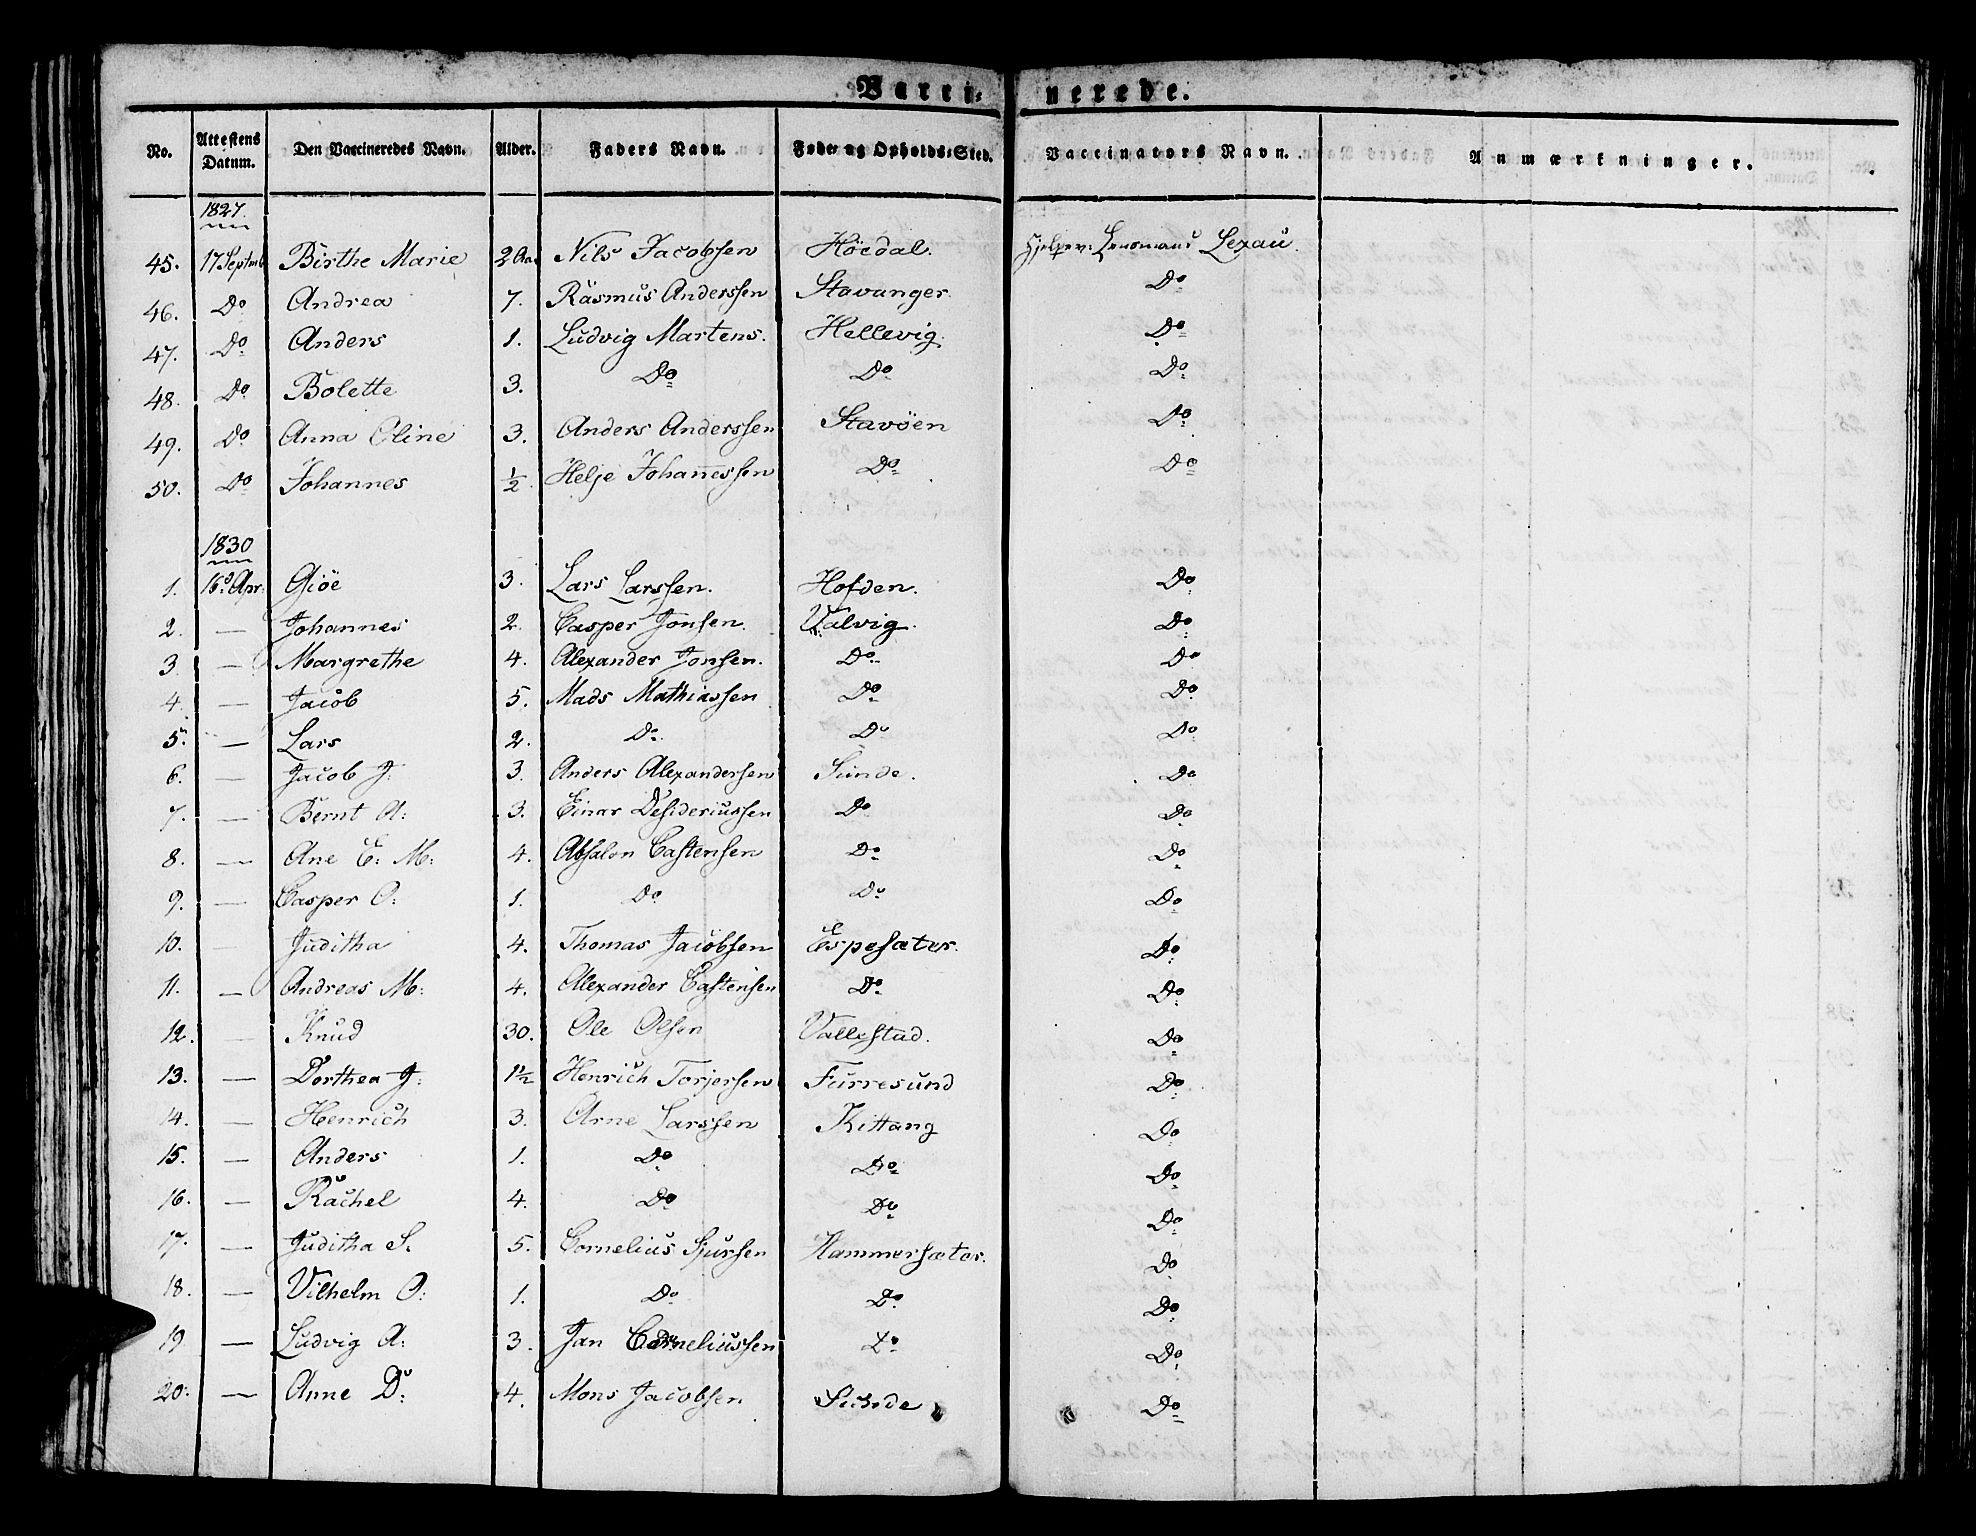 Vacci- nerede.
No. Attestens Datum. Den Vaccineredes Navn. Alder. Faders Navn. Føde- og Opholds-Sted. Vaccinateurs Navn. Anmærkninger.
1827.
45. 17 Septmb Birthe Marie 2 Aa. Nils Jacobsen Höedal. Hjelpev: Lensmand Lexau.
46. Do Andrea 7. Rasmus Anderssen Stavanger. Do
47. Do Anders 1. Ludvig Martens. Hellevig. Do
48. Do Bolette 3. Do Do Do
49. Do Anna Oline 3. Anders Anderssen Stavöen Do
50. Do Johannes ½ Helje Johannessen Do Do
1830
1. 16d Apr: Giöe 3. Lars Larssen. Hofden. Do
2. — Johannes 2. Casper Jonsen. Valvig. Do
3. — Margrethe 4. Alexander Jonsen. Do Do
4. — Jacob 5. Mads Mathiassen Do Do
5. — Lars 2. Do Do Do
6. — Jacob J: 3. Anders Alexandersen Sunde. Do
7. — Bernt A: 3. Einar Desideriussen Do Do
8. — Ane E: M: 4. Absalon Castensen Do Do
9. — Casper O: 1. Do Do Do
10. — Juditha 4. Thomas Jacobsen Espesæter. Do
11. — Andreas M: 4. Alexander Castensen Do Do
12. — Knud 30. Ole Olsen Vallestad. Do
13. — Dorthea J: 1½ Henrich Torjersen Furresund Do
14. — Henrich 3. Arne Larssen Kittang Do
15. — Anders 1. Do Do Do
16. — Rachel 4. Do Do Do
17. — Juditha S. 5. Cornelius Sjursen Hammersæter. Do
18. — Vilhelm O: 1. Do Do Do
19. — Ludvig A: 3. Jan Corneliussen Do Do
20. — Anne D: 4. Mons Jacobsen Sunde Do